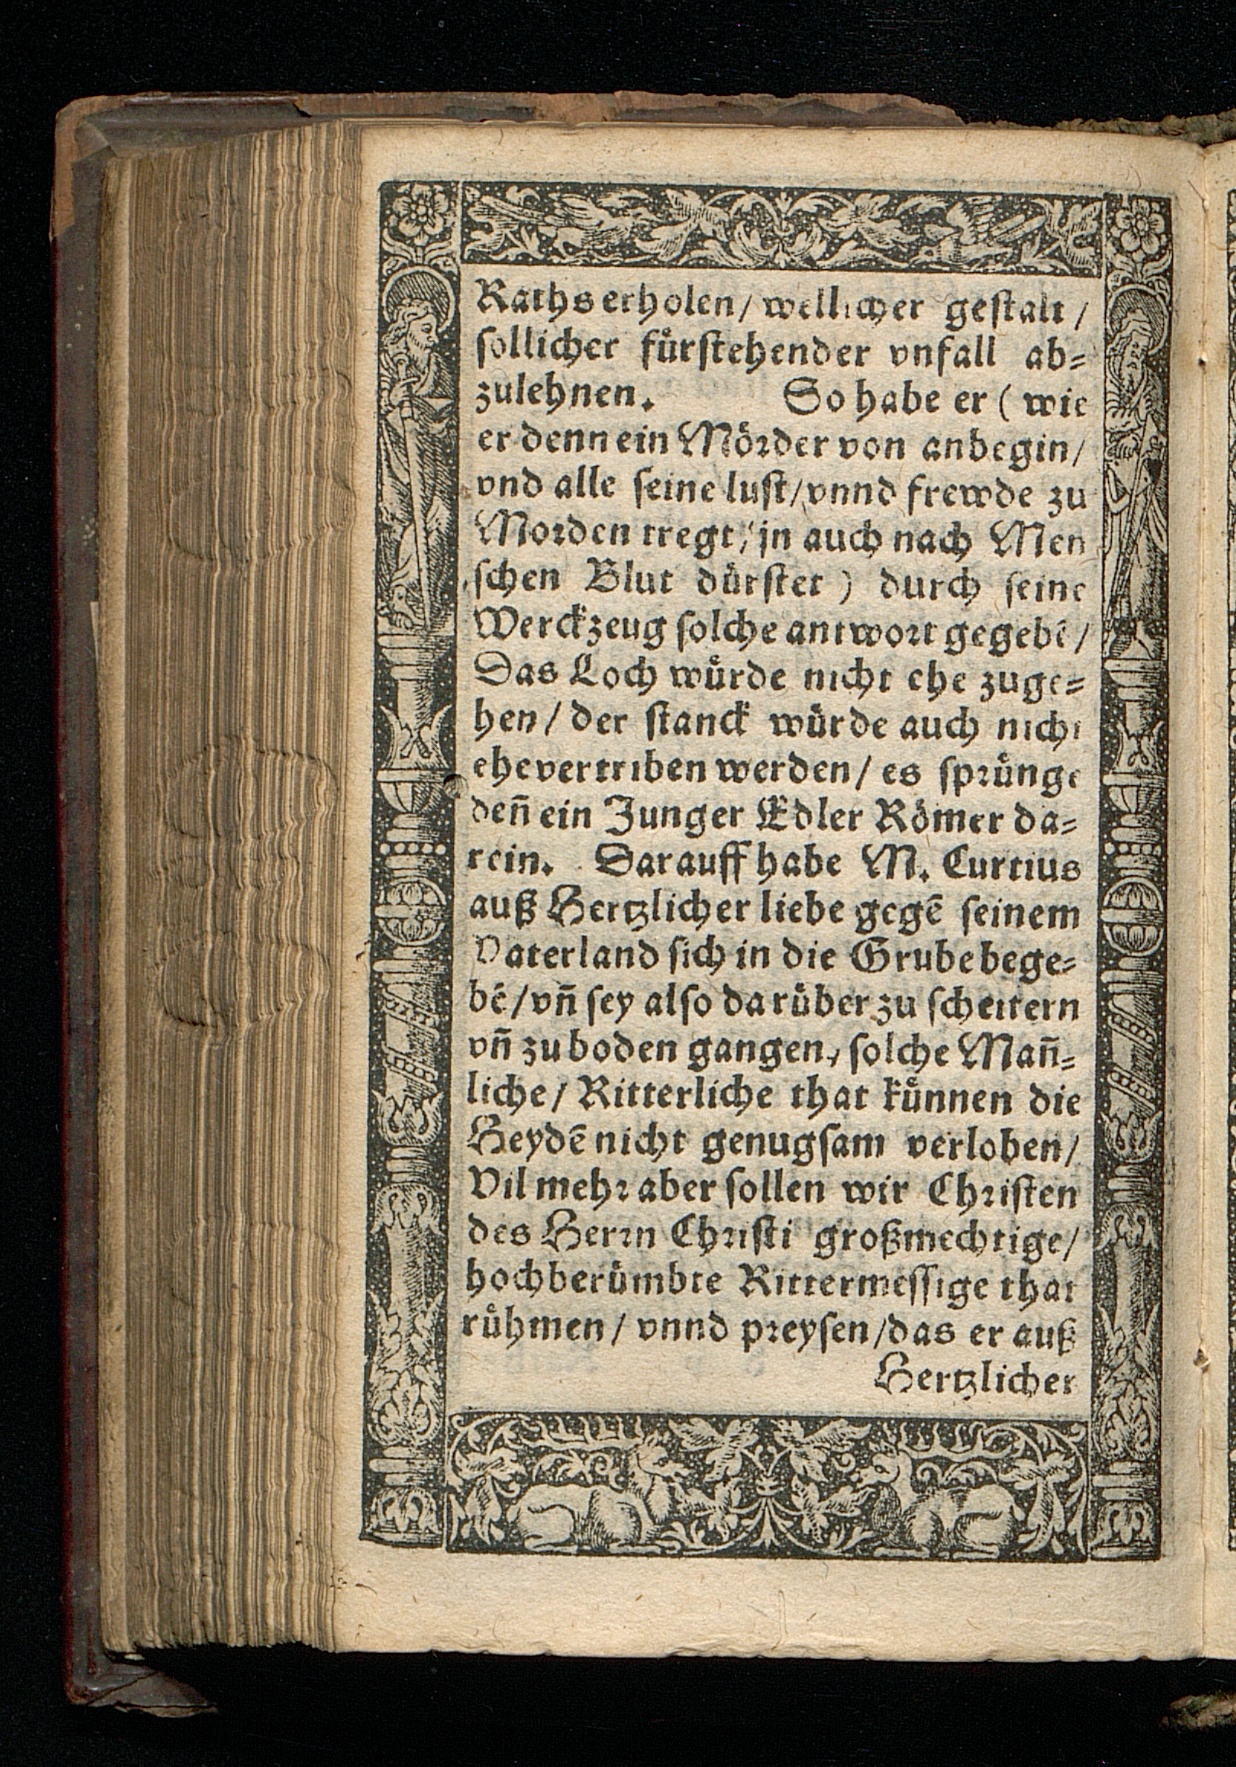 Raths erholen / wellicher gestalt /
sollicher fürstehender vnfall ab⸗
zulehnen. So habe er ( wie
er denn ein Mörder von anbegin /
vnd alle seine lust / vnnd frewde zu
Morden tregt / jn auch nach Men
schen Blut dürstet ) durch seine
Werckzeug solche antwort gegebē /
Das Loch würde nicht ehe zuge⸗
hen / der stanck würde auch nicht
ehe vertriben werden / es sprünge
deñ ein Junger Edler Römer da⸗
rein. Darauff habe M. Curtius
auß Hertzlicher liebe gegē seinem
Vaterland sich in die Grube bege⸗
bē / vñ sey also darüber zu scheitern
vñ zu boden gangen, solche Mañ⸗
liche / Ritterliche that künnen die
Heydē nicht genugsam verloben /
Vil mehr aber sollen wir Christen
des Herrn Christi großmechtige /
hochberümbte Rittermessige that
rühmen / vnnd preysen / das er auß
Hertzlicher